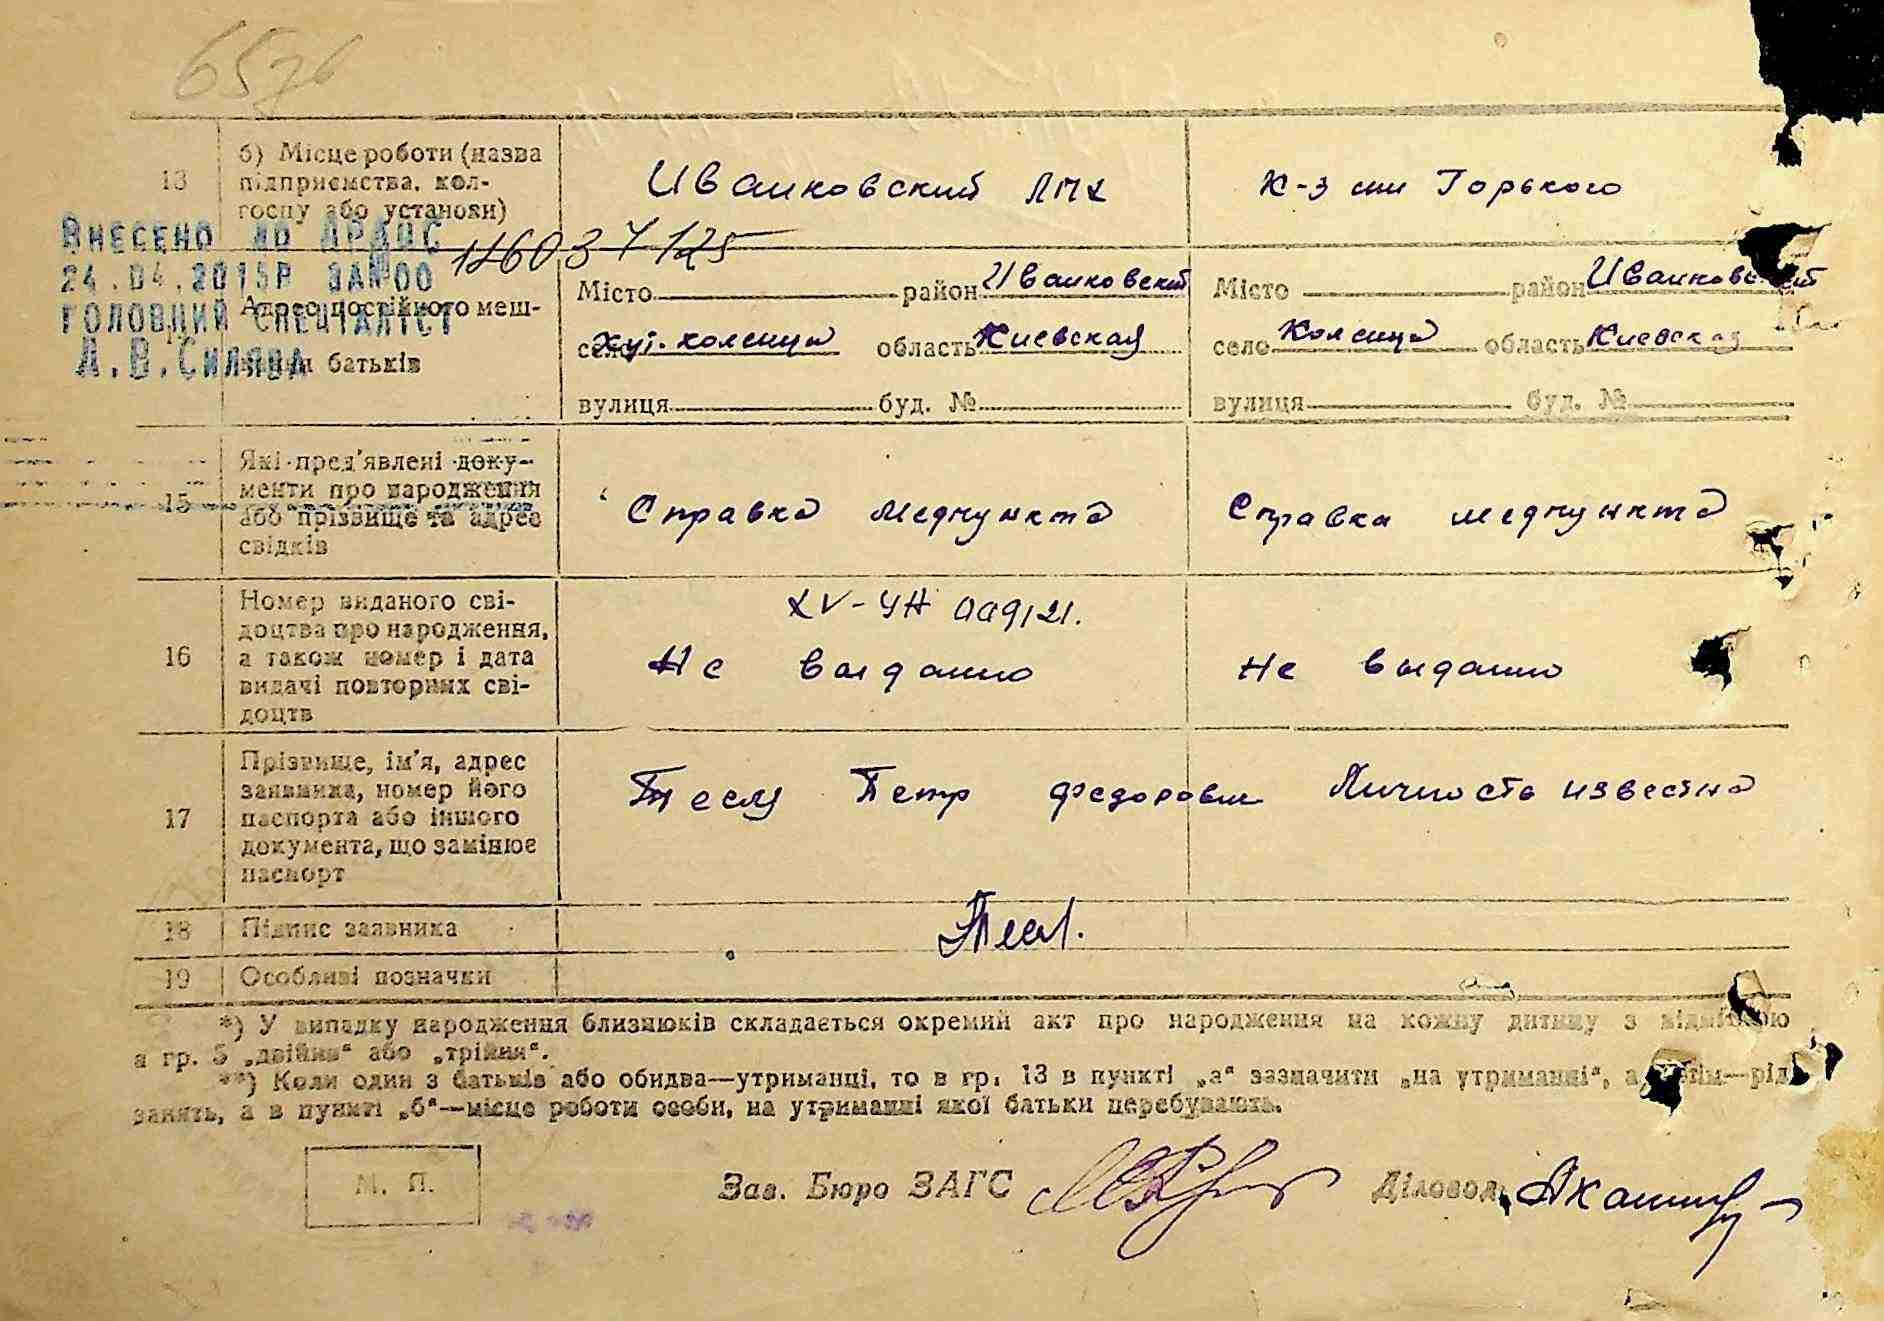 13
б) Місце роботи (назва
підприємства, кол-
госпу або установи)
Иванковский ЛПХ
К-з им Горького
ВНЕСЕНО ДО ДРАЦС
24.04.2015Р ЗА№00
ГОЛОВНИЙ СПЕЦІАЛІСТ
А.В.СИЛЯВА
Адрес постійного меш-
батьків
Місто район Иванковский
село хут. Колеица область Киевская
вулиця буд. №
Місто район Иванковский
село область Киевская
вулиця буд. №
15
Які пред'явлені доку-
менти про народження
або прізвище та адрес
свідків
Справка Медпункта
Справка медпункта
16
Номер виданого сві-
доцтва про народження,
а також номер і дата
видачі повторних сві-
доцтв
Не выданно
не выданно
17
Прізвище, ім'я, адрес
заявника, номер його
паспорта або іншого
документа, що замінює
паспорт
Петр Федорович Личность известна
18
Підпис заявника
19
Особливі позначки
*) У випадку народження близнюків складається окремий акт про народження на кожну дитину з відміткою
а гр. 5 „двійня“ або „трійня“.
**) Коли один з батьків або обидва—утриманці, то в гр. 13 в пункті „а“ зазначити „на утриманні“, а рід
занять, а в пункті „б“—місце роботи особи, на утриманні якої батьки перебувають.
М. П.
Зав. Бюро ЗАГС
Діловод